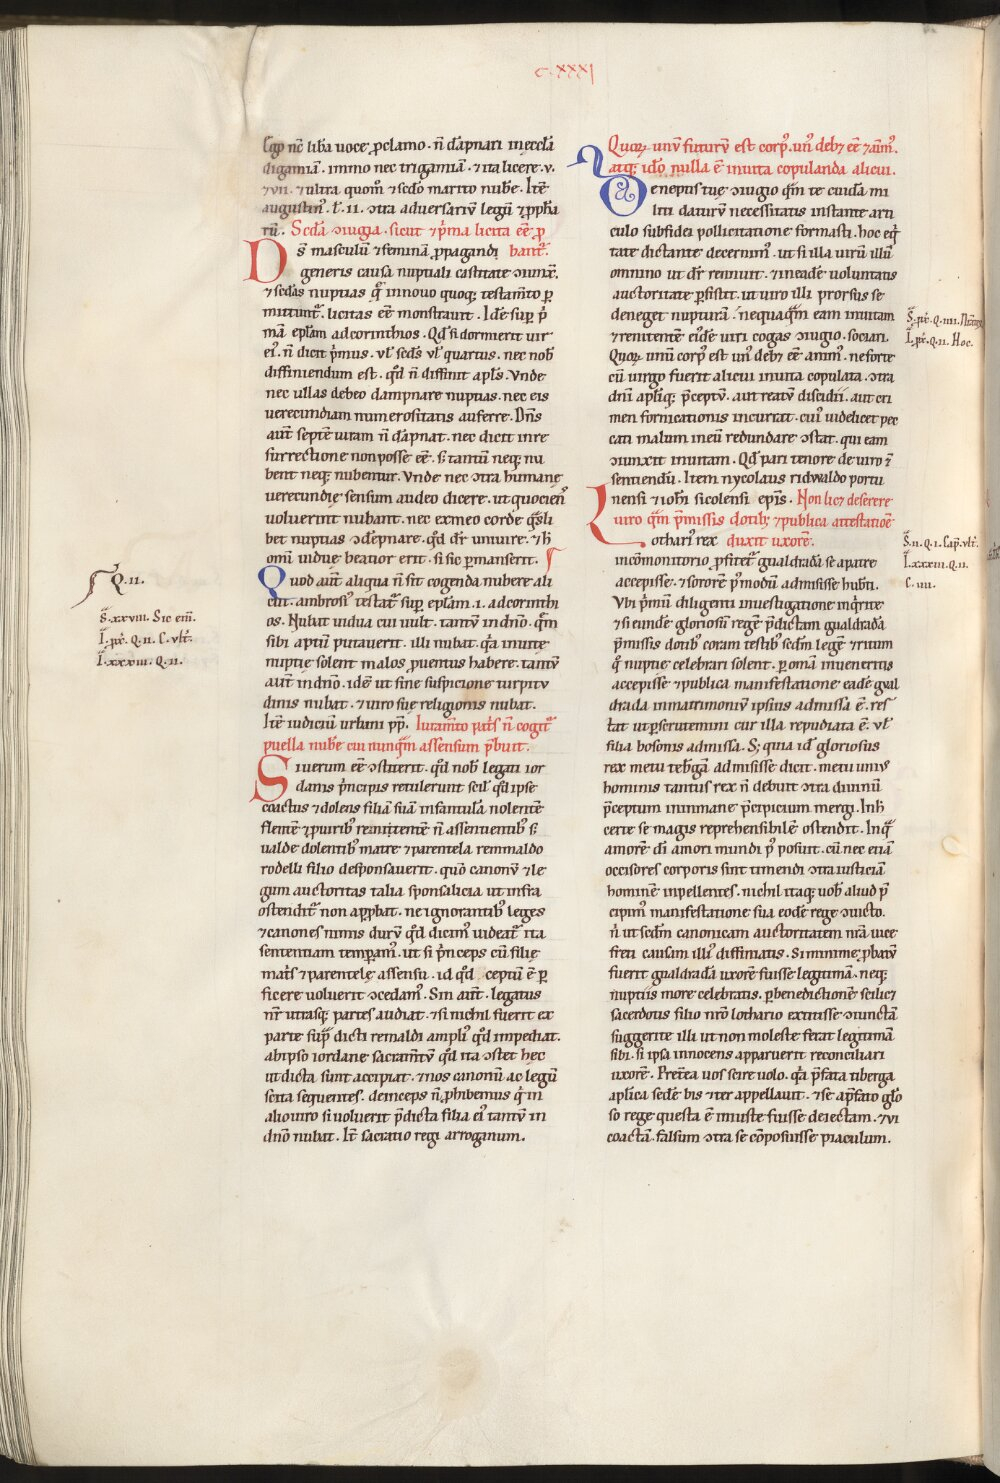 c. xxxi
Ego nc̄ liba uoce ꝓclamo. n̄ dāpnari in eccłā
digamiā. immo nec trigamiā. ⁊ ita licere. v.
⁊ vii. ⁊ ultra quom̄ ⁊ sc̄do marito nub̄e. Itē
augustin᷒. ł. ii. ɔtra adversariv̄ legū ⁊ ꝓpħa
rū. Sc̄dā ɔiugia. sicut ⁊ p̄ma licita eē ꝓ
Ds̄ masculū ⁊ feminā ꝓpagandi bant᷑.
generis causa nuptiali castitate ɔiunx̄.
⁊ sc̄das nuptias q̄ in nouo quoq; testam̄to ꝑ
mittunt᷑. licitas eē monstrauit. Idē sup̄ p̄
mā epłam ad corinthios. Qđ si dormierit uir
ei᷒. n̄ dicit p̄mus. vł sc̄ds vł quartus. nec nob̄
diffiniendum est. qđ n̄ diffinit apłs. Vnde
nec ullas debeo dampnare nuptias. nec eis
uerecundiam numerositatis auferre. Dn̄s
aut̄ septē uiram n̄ dāpnat. nec dicit in re
surrectione non posse eē. s; tantū neq; nu
bent neq; nubentur. Vnde nec ɔtra humanę
uerecundię sensum audeo dicere. ut quociēs
voluerint nubant. nec ex meo corde q̄sli
bet nuptias ɔdēpnare. qđ dr̄ uniuirę. ⁊ ħ
om̄i uiduę beatior erit. si sic ꝑmanserit.
Quod aut̄ aliqua n̄ sit cogenda nubere ali
cui. ambrosi᷒ testat᷑ sup̄ epłam. i. ad corinthi
os. Nubat uidua cui uult. tantv̄ in dn̄o. q̄m
sibi aptū putauerit. illi nubat. q̄a inuitę
nuptię solent malos ꝓuentus habere. tantv̄
aut̄ in dn̄o. idē ut sine suspicione turpitv
dinis nubat. ⁊ uiro suę religionis nubat.
Itē iudiciū urbani pp̄. Iuram̄to pat̄s n̄ cogit᷑
puella nub̄e cui nunq̄m assensum p̄buit.
Si uerum eē ɔstiterit. qđ nob̄ legati ior
danis p̄ncipis retulerunt scił qđ ipse
coactus ⁊ dolens filiā suā infantulā nolentē
flentē ⁊ ꝓ uirib᷒ renitentē n̄ assentientib᷒ s;
ualde dolentib᷒ matre ⁊ parentela reinnaldo
rodelli filio desponsauerit. quō canonv̄ ⁊ le
gum auctoritas talia sponsalicia ut infra
ostendit᷑ non apꝓbat. ne ignorantib᷒ leges
⁊ canones nimis durv̄ qđ dicim᷒ uideat᷑ ita
sententiam temꝑam᷒. ut si p̄nceps cū filię
mat̄s ⁊ parentelę assensu. id qđ ceptū ē ꝑ
ficere voluerit ɔcedam᷒. Sin aut̄. legatus
nr̄ utrasq; partes audiat. ⁊ si nichil fuerit ex
parte sup̄ dicti renaldi ampli᷒ qđ impediat.
ab ipso iordane sacram̄tv̄ qđ ita ɔstet hec
ut dicta sunt accipiat. ⁊ nos canonū ac legū
scita sequentes. deinceps n̄ ꝓhibemus q̄n
alio uiro si voluerit p̄dicta filia ei᷒ tantv̄ in
dn̄o nubat. It̄ sacratio regi arroganum.
Q. ii.
s̄. xxviii. Sic em̄.
I. px̄. Q. ii. C. vlt̄.
I. xxxiii. Q. ii.
Quoꝝ unv̄ futurv̄ est corp᷒. un᷒ deb; eē ⁊ aīm᷒.
atq; idō nulla ē inuita copulanda alicui.
De neptis tuę ɔiugio q̄m te cuidā mi
liti daturv̄ necessitatis instante arti
culo sub fidei pollicitatione formasti. hoc eq̄
tate dictante decernim᷒. ut si illa uirū illū
omnino ut dr̄ rennuit. ⁊ in eadē voluntatis
auctoritate ꝑsistit. ut uiro illi prorsus se
deneget nupturā. nequaq̄m eam inuitam
⁊ renitentē eidē uiri cogas ɔiugio. sociari.
Quoꝝ unū corp᷒ est un᷒ deb; eē anim᷒. ne forte
cū virgo fuerit alicui inuita copulata. ɔtra
dn̄i apłiq; p̄ceptv̄. aut reatv̄ discidii. aut cri
men fornicationis incurrat. cui᷒ videlicet pec
cati malum in eū redundare ɔstat. qui eam
ɔiunxit inuitam. Qđ pari tenore de viro ē
sentiendū. Item nycolaus ridwaldo portu
nensi ⁊ ioħi sicolensi epīs. Non lic; deserere
uiro q̄m p̄missis dotib; ⁊ publica attestatioē
Lothari᷒ rex duxit uxorē.
in cōmonitorio ꝓfitet᷑ gualdradā se a patre
accepisse. ⁊ sororē p̄modū admisisse hub̄ti.
Vbi p̄mū diligenti inuestigatione inq̄rite
⁊ si eundē gloriosū regē p̄dictam gualdradā
p̄missis dotib᷒ coram testib᷒ sc̄dm legē ⁊ ritum
q̄ nuptię celebrari solent. ꝑ om̄a inueneritis
accepisse ⁊ publica manifestatione eadē gual
drada in matrimoniv̄ ipsius admissa ē. res
tat ut ꝑscrutemini cur illa repudiata ē. vł
filia bosonis admissa. S; quia id gloriosus
rex metu tebgā admisisse dicit. metu uni᷒
hominis tantus rex n̄ debuit ɔtra diuinū
p̄ceptum in inmane p̄cipicium mergi. In ħ
certe se magis reprehensibilē ostendit. In q̄
amorē di amori mundi p̄posuit. cū nec etiā
occisores corporis sint timendi ɔtra iusticiā
hominē inpellentes. nichil itaq; uob̄ aliud p̄
cipim᷒ manifestatione sua eodē rege ɔuicto.
n̄ ut sc̄dm canonicam auctoritatem nr̄a uice
freti causam illi᷒ diffiniatis. Si minime ꝓbatv̄
fuerit gualdradā uxorē fuisse legitimā. neq;
nuptiis more celebratis. ꝑ benedictionē scilic;
sacerdotis filio nr̄o lothario extitisse ɔiunctā
suggerite illi ut non moleste ferat legitimā
sibi. si ipsa innocens apparuerit reconciliari
uxorē. Pret̄ea uos scire uolo. q̄a p̄fata tiberga
apłica sedē bis ⁊ ter appellauit. ⁊ se a p̄fato glō
so rege questa ē iniuste fuisse deiectam. ⁊ vi
coactā. falsum ɔtra se cōposuisse piaculum.
s̄. px̄. Q. iiii.
I. px̄. Q. ii. Hoc.
s̄. ii. Q. i. Cap̄. vlt̄.
I. xxxiii. Q. ii.
C. iiii.